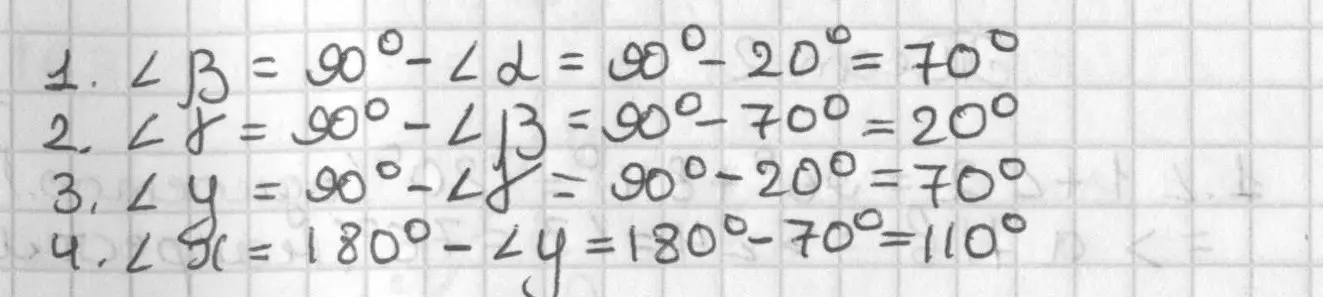 1. ∠β = 90° - ∠α = 90° - 20° = 70°
2. ∠γ = 90° - ∠β = 90° - 70° = 20°
3. ∠y = 90° - ∠γ = 90° - 20° = 70°
4. ∠x = 180° - ∠y = 180° - 70° = 110°